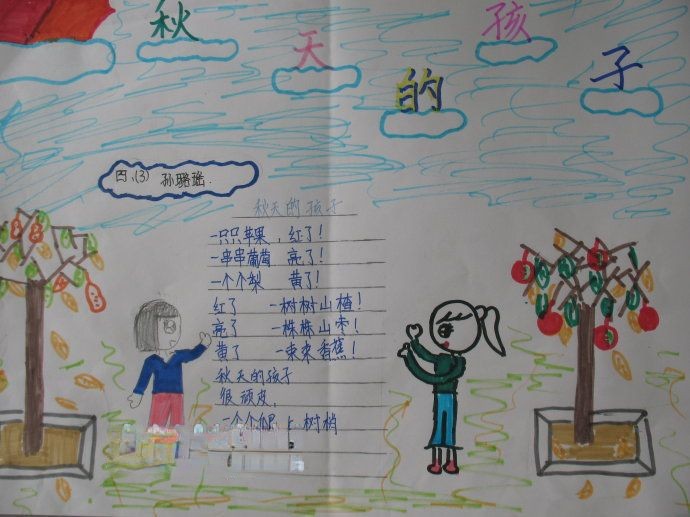 秋天的孩子
四、(3) 孙璐瑶.
秋天的孩子
一只只苹果,红了!
一串串葡萄 亮了!
一个个梨 黄了!
红了 一树树山楂!
亮了 一株株山枣!
黄了 一束束香蕉!
秋天的孩子
很顽皮,
一个个 上树梢